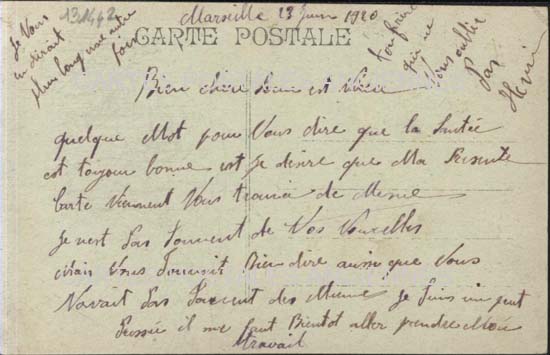 Marseille 23 Juin 1920
131442
CARTE POSTALE
Je Vous
en dirait
plus long une autre
fois
ton frère
qui ne
Vous oublie
Pas
Henri
Bien chère Soeur est
quelque Mot pour Vous dire que la Santée
est toujour bonne est Je desire que Ma Presente
Carte viennent Vous trouver de Meme
Je nest Pas Souvent de Vos Nouvelles
Vous Pouvait Bien dire aussi que Vous
Navait Pas Souvent des Mienne Je suis un peut
Pressée il me faut Bientot aller prendre Mon
travail